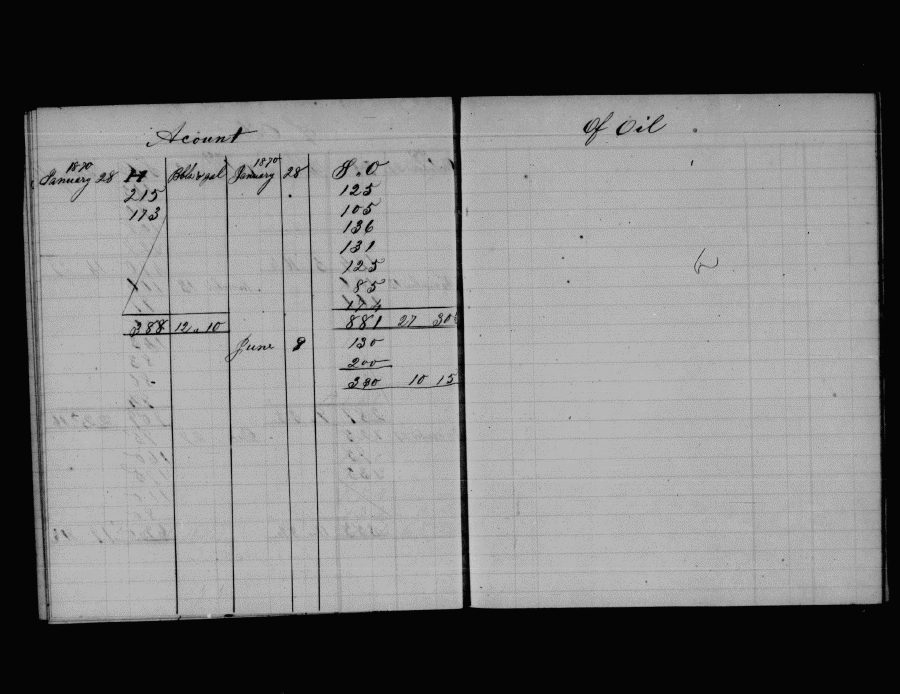 Acount
Of Oil
1870
January 28 H Bbls & gal
215
173
388 12 10
1870
January 28 S.O
125
105
136
131
125
85
174
881 27 30
June 8 130
200
330 10 15